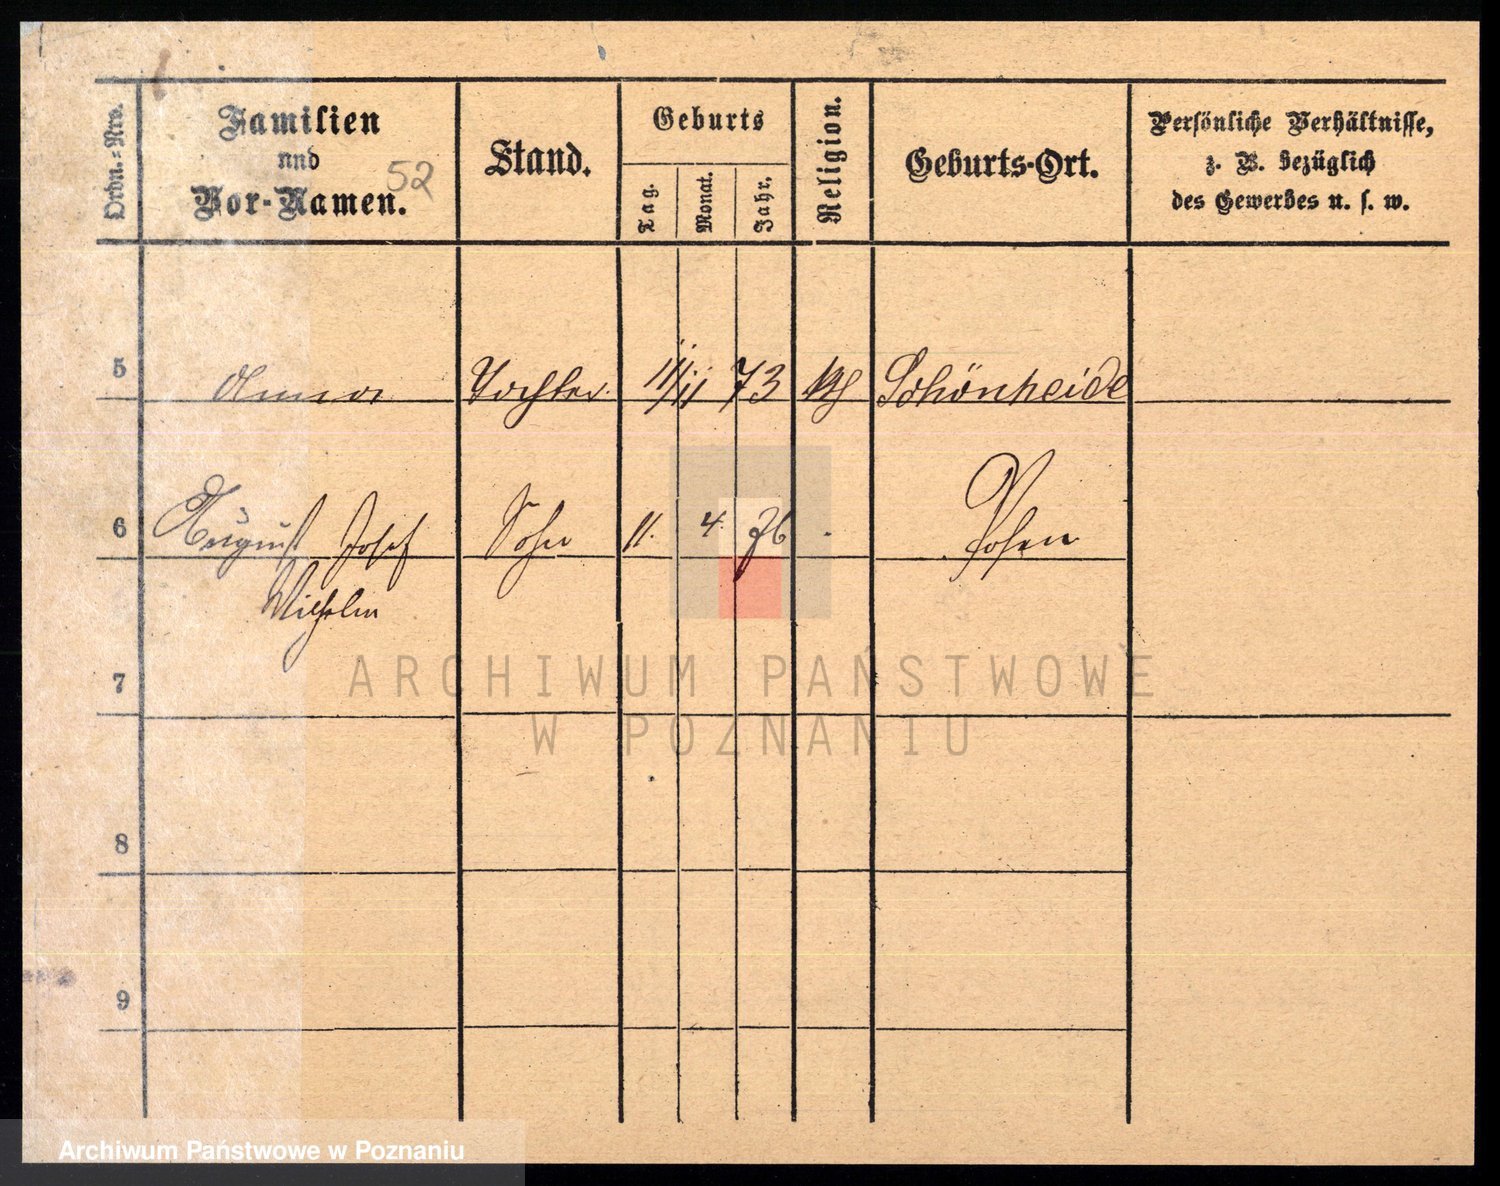 52
Ordn.-Nro.
Familien
und
Vor-Namen.
Stand.
Geburts
Tag.
Monat.
Jahr.
Religion.
Geburts-Ort.
Persönliche Verhältnisse,
z. B. bezüglich
des Gewerbes u. s. w.
5 Anna Tochter 11/11 73 Schönheide
6 August Josef Sohn 11. 4. 76 Posen
Wilhelm
7
8
9
ARCHIWUM PAŃSTWOWE
W POZNANIU
Archiwum Państwowe w Poznaniu